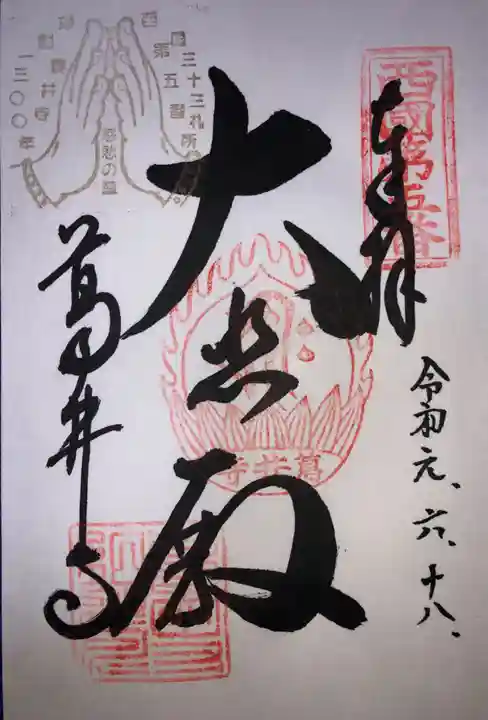 西國第五番
奉拝
令和元、六、十八、
大悲殿
葛井寺
西国三十三札所
第五番
葛井寺
一三〇〇年
慈愁の聖
葛井寺